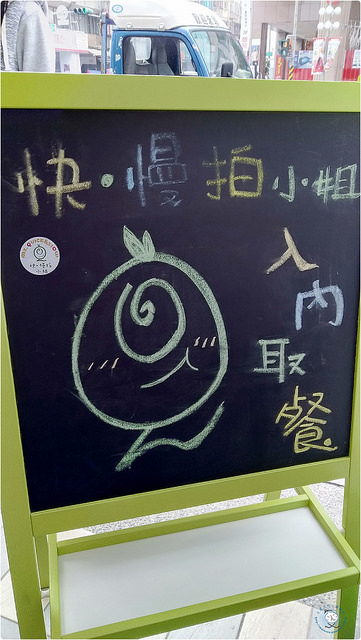 快·慢拍小姐
入
內
取
餐